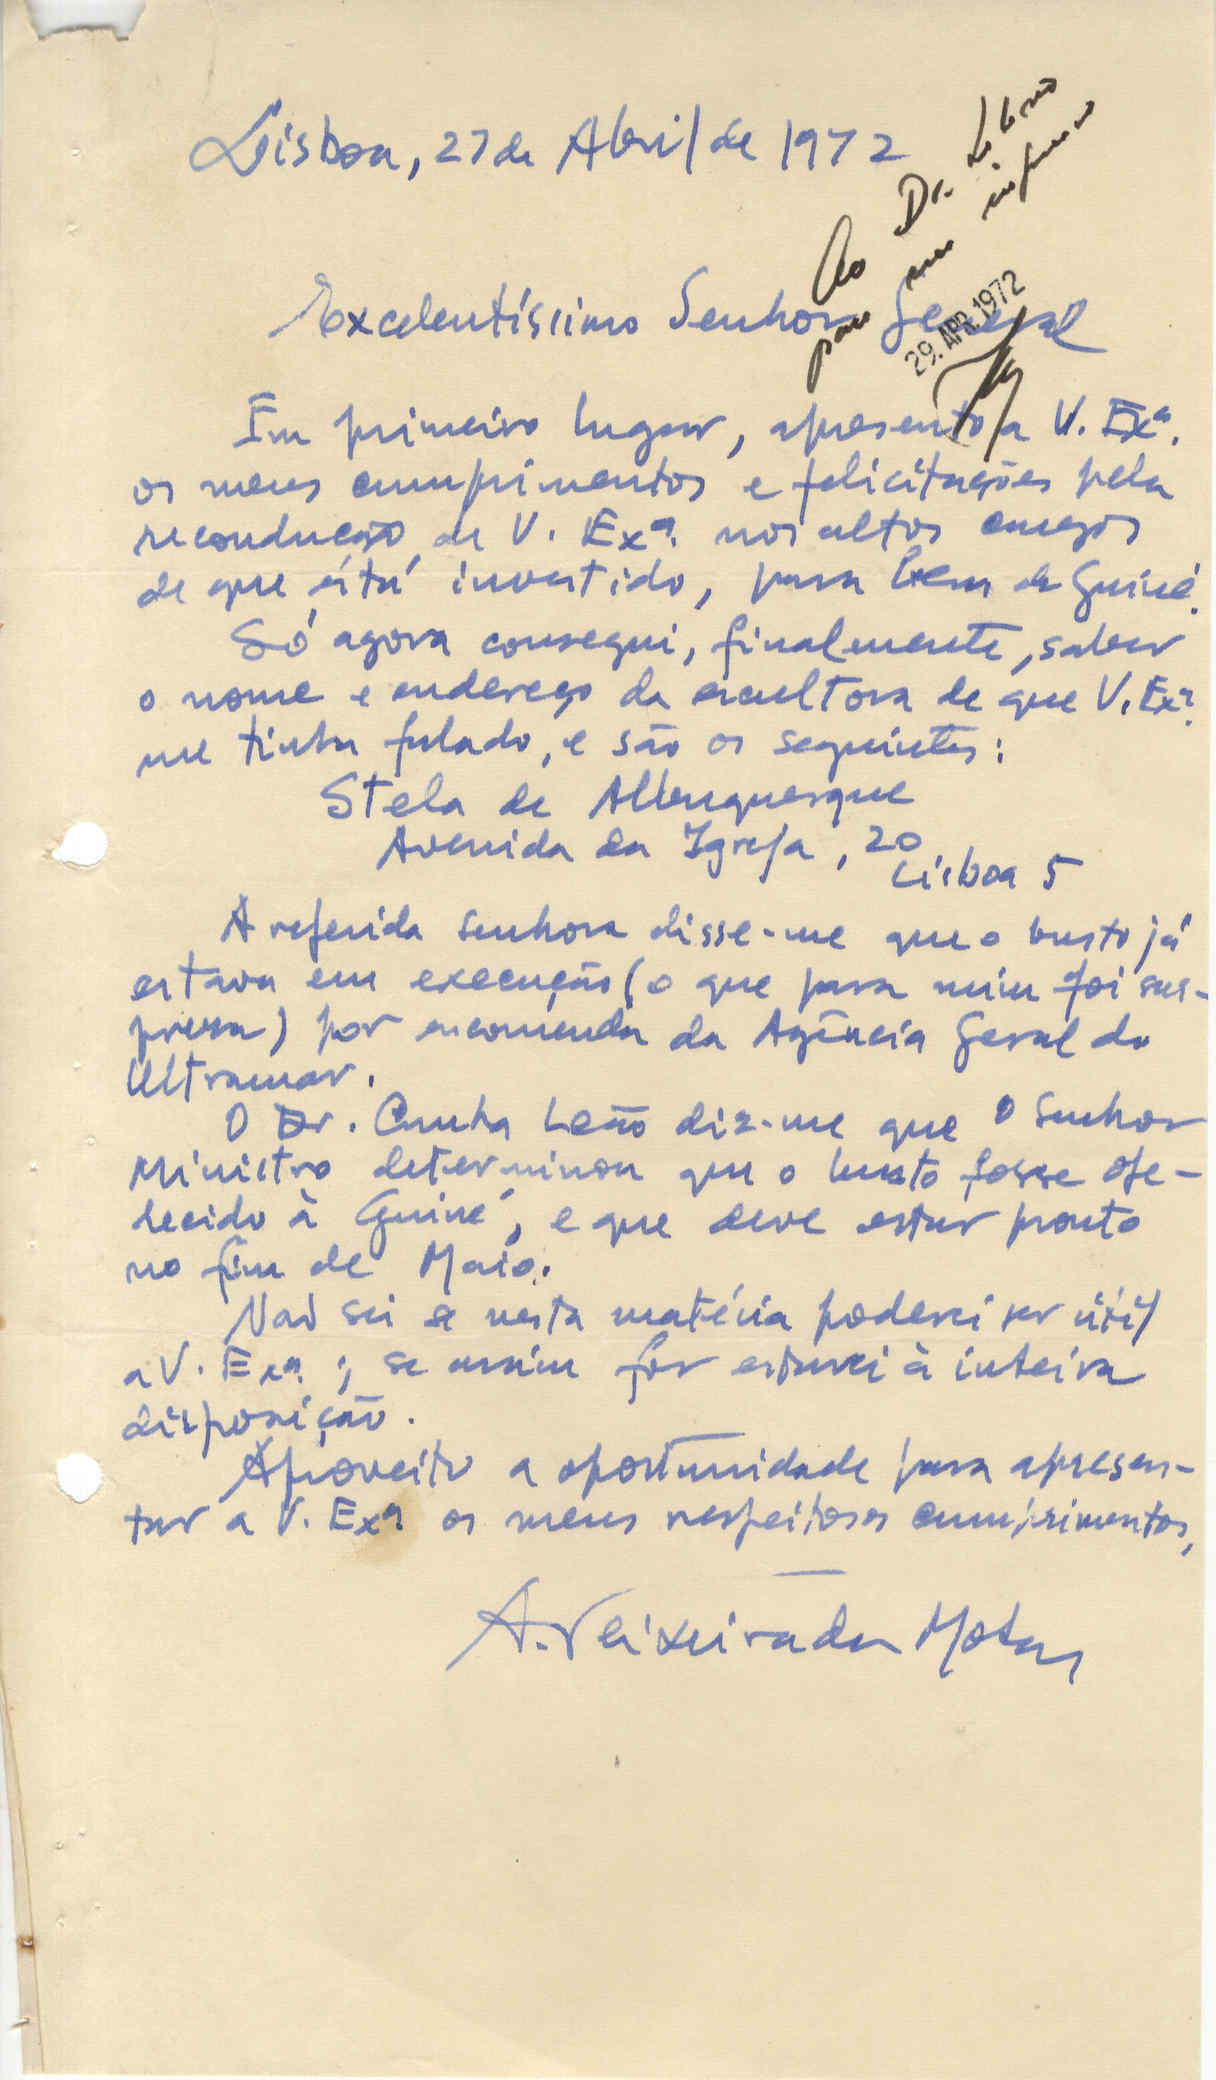 Lisboa, 27 de Abril de 1972
Ao Dr. 
para meu
29. APR. 1972
Excelentíssimo Senhor General
Em primeiro lugar, apresento a V. Exª.
os meus cumprimentos e felicitações pela
recondução de V. Exª. nos altos cargos
de que está investido, para bem da Guiné.
Só agora consegui, finalmente, saber
o nome e endereço da escultora de que V. Exª.
me tinha falado, e são os seguintes:
Stela de Albuquerque
Avenida da Igreja, 20
Lisboa 5
A referida senhora disse-me que o busto já
estava em execução (o que para mim foi sur-
presa) por encomenda da Agência Geral do
Ultramar.
O Dr. Cunha Leão diz-me que o Senhor
Ministro determinou que o busto fosse ofe-
recido à Guiné, e que deve estar pronto
no fim de Maio.
Não sei se nesta matéria poderei ser útil
a V. Exª.; se assim for estarei à inteira
disposição.
Aproveito a oportunidade para apresen-
tar a V. Exª os meus respeitosos cumprimentos,
A. Teixeira da Mota